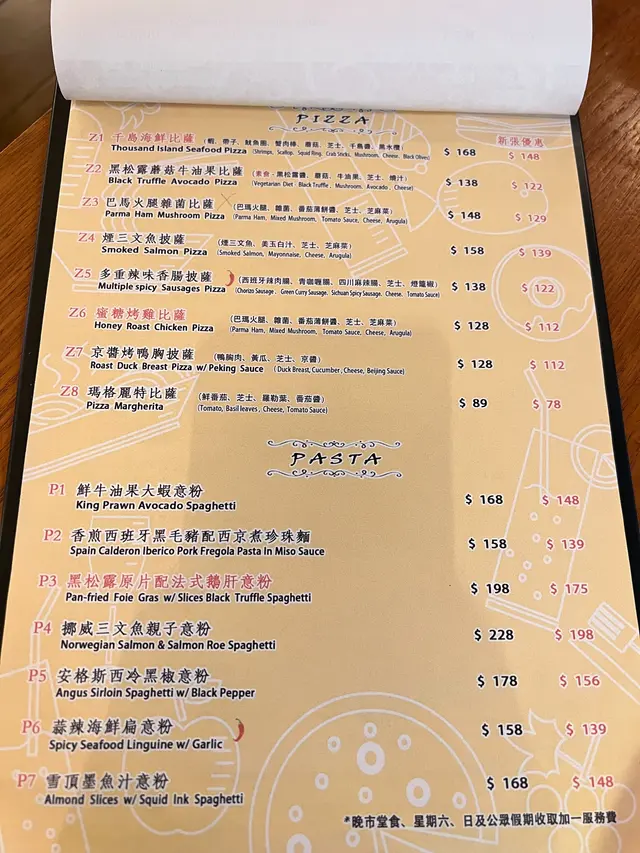 PIZZA
新張優惠
Z1 千島海鮮比薩 (蝦、帶子、魷魚圈、蟹肉棒、蘑菇、芝士、千島醬、黑水欖) $ 168 $ 148
Thousand Island Seafood Pizza (Shrimps, Scallop, Squid Ring, Crab Sticks, Mushroom, Cheese, Black Olives)
Z2 黑松露蘑菇牛油果比薩 (素食 - 黑松露醬、蘑菇、牛油果、芝士、燒汁) $ 138 $ 122
Black Truffle Avocado Pizza (Vegetarian Diet - Black Truffle, Mushroom, Avocado, Cheese)
Z3 巴馬火腿雜菌比薩 (巴馬火腿、雜菌、番茄薄餅醬、芝士、芝麻菜) $ 148 $ 129
Parma Ham Mushroom Pizza (Parma Ham, Mixed Mushroom, Tomato Sauce, Cheese, Arugula)
Z4 煙三文魚披薩 (煙三文魚、美玉白汁、芝士、芝麻菜) $ 158 $ 139
Smoked Salmon Pizza (Smoked Salmon, Mayonnaise, Cheese, Arugula)
Z5 多重辣味香腸披薩 (西班牙辣肉腸、青咖喱腸、四川麻辣腸、芝士、燈籠椒) $ 138 $ 122
Multiple spicy Sausages Pizza (Chorizo Sausage, Green Curry Sausage, Sichuan Spicy Sausage, Cheese, Tomato Sauce)
Z6 蜜糖烤雞比薩 (巴馬火腿、雜菌、番茄薄餅醬、芝士、芝麻菜) $ 128 $ 112
Honey Roast Chicken Pizza (Parma Ham, Mixed Mushroom, Tomato Sauce, Cheese, Arugula)
Z7 京醬烤鴨胸披薩 (鴨胸肉、黃瓜、芝士、京醬) $ 128 $ 112
Roast Duck Breast Pizza w/ Peking Sauce (Duck Breast, Cucumber, Cheese, Beijing Sauce)
Z8 瑪格麗特比薩 (鮮番茄、芝士、羅勒葉、番茄醬) $ 89 $ 78
Pizza Margherita (Tomato, Basil leaves, Cheese, Tomato Sauce)
PASTA
P1 鮮牛油果大蝦意粉 $ 168 $ 148
King Prawn Avocado Spaghetti
P2 香煎西班牙黑毛豬配西京煮珍珠麵 $ 158 $ 139
Spain Calderon Iberico Pork Fregola Pasta In Miso Sauce
P3 黑松露原片配法式鵝肝意粉 $ 198 $ 175
Pan-fried Foie Gras w/ Slices Black Truffle Spaghetti
P4 挪威三文魚親子意粉 $ 228 $ 198
Norwegian Salmon & Salmon Roe Spaghetti
P5 安格斯西冷黑椒意粉 $ 178 $ 156
Angus Sirloin Spaghetti w/ Black Pepper
P6 蒜辣海鮮扁意粉 $ 158 $ 139
Spicy Seafood Linguine w/ Garlic
P7 雪頂墨魚汁意粉 $ 168 $ 148
Almond Slices w/ Squid Ink Spaghetti
*晚市堂食、星期六、日及公眾假期收取加一服務費